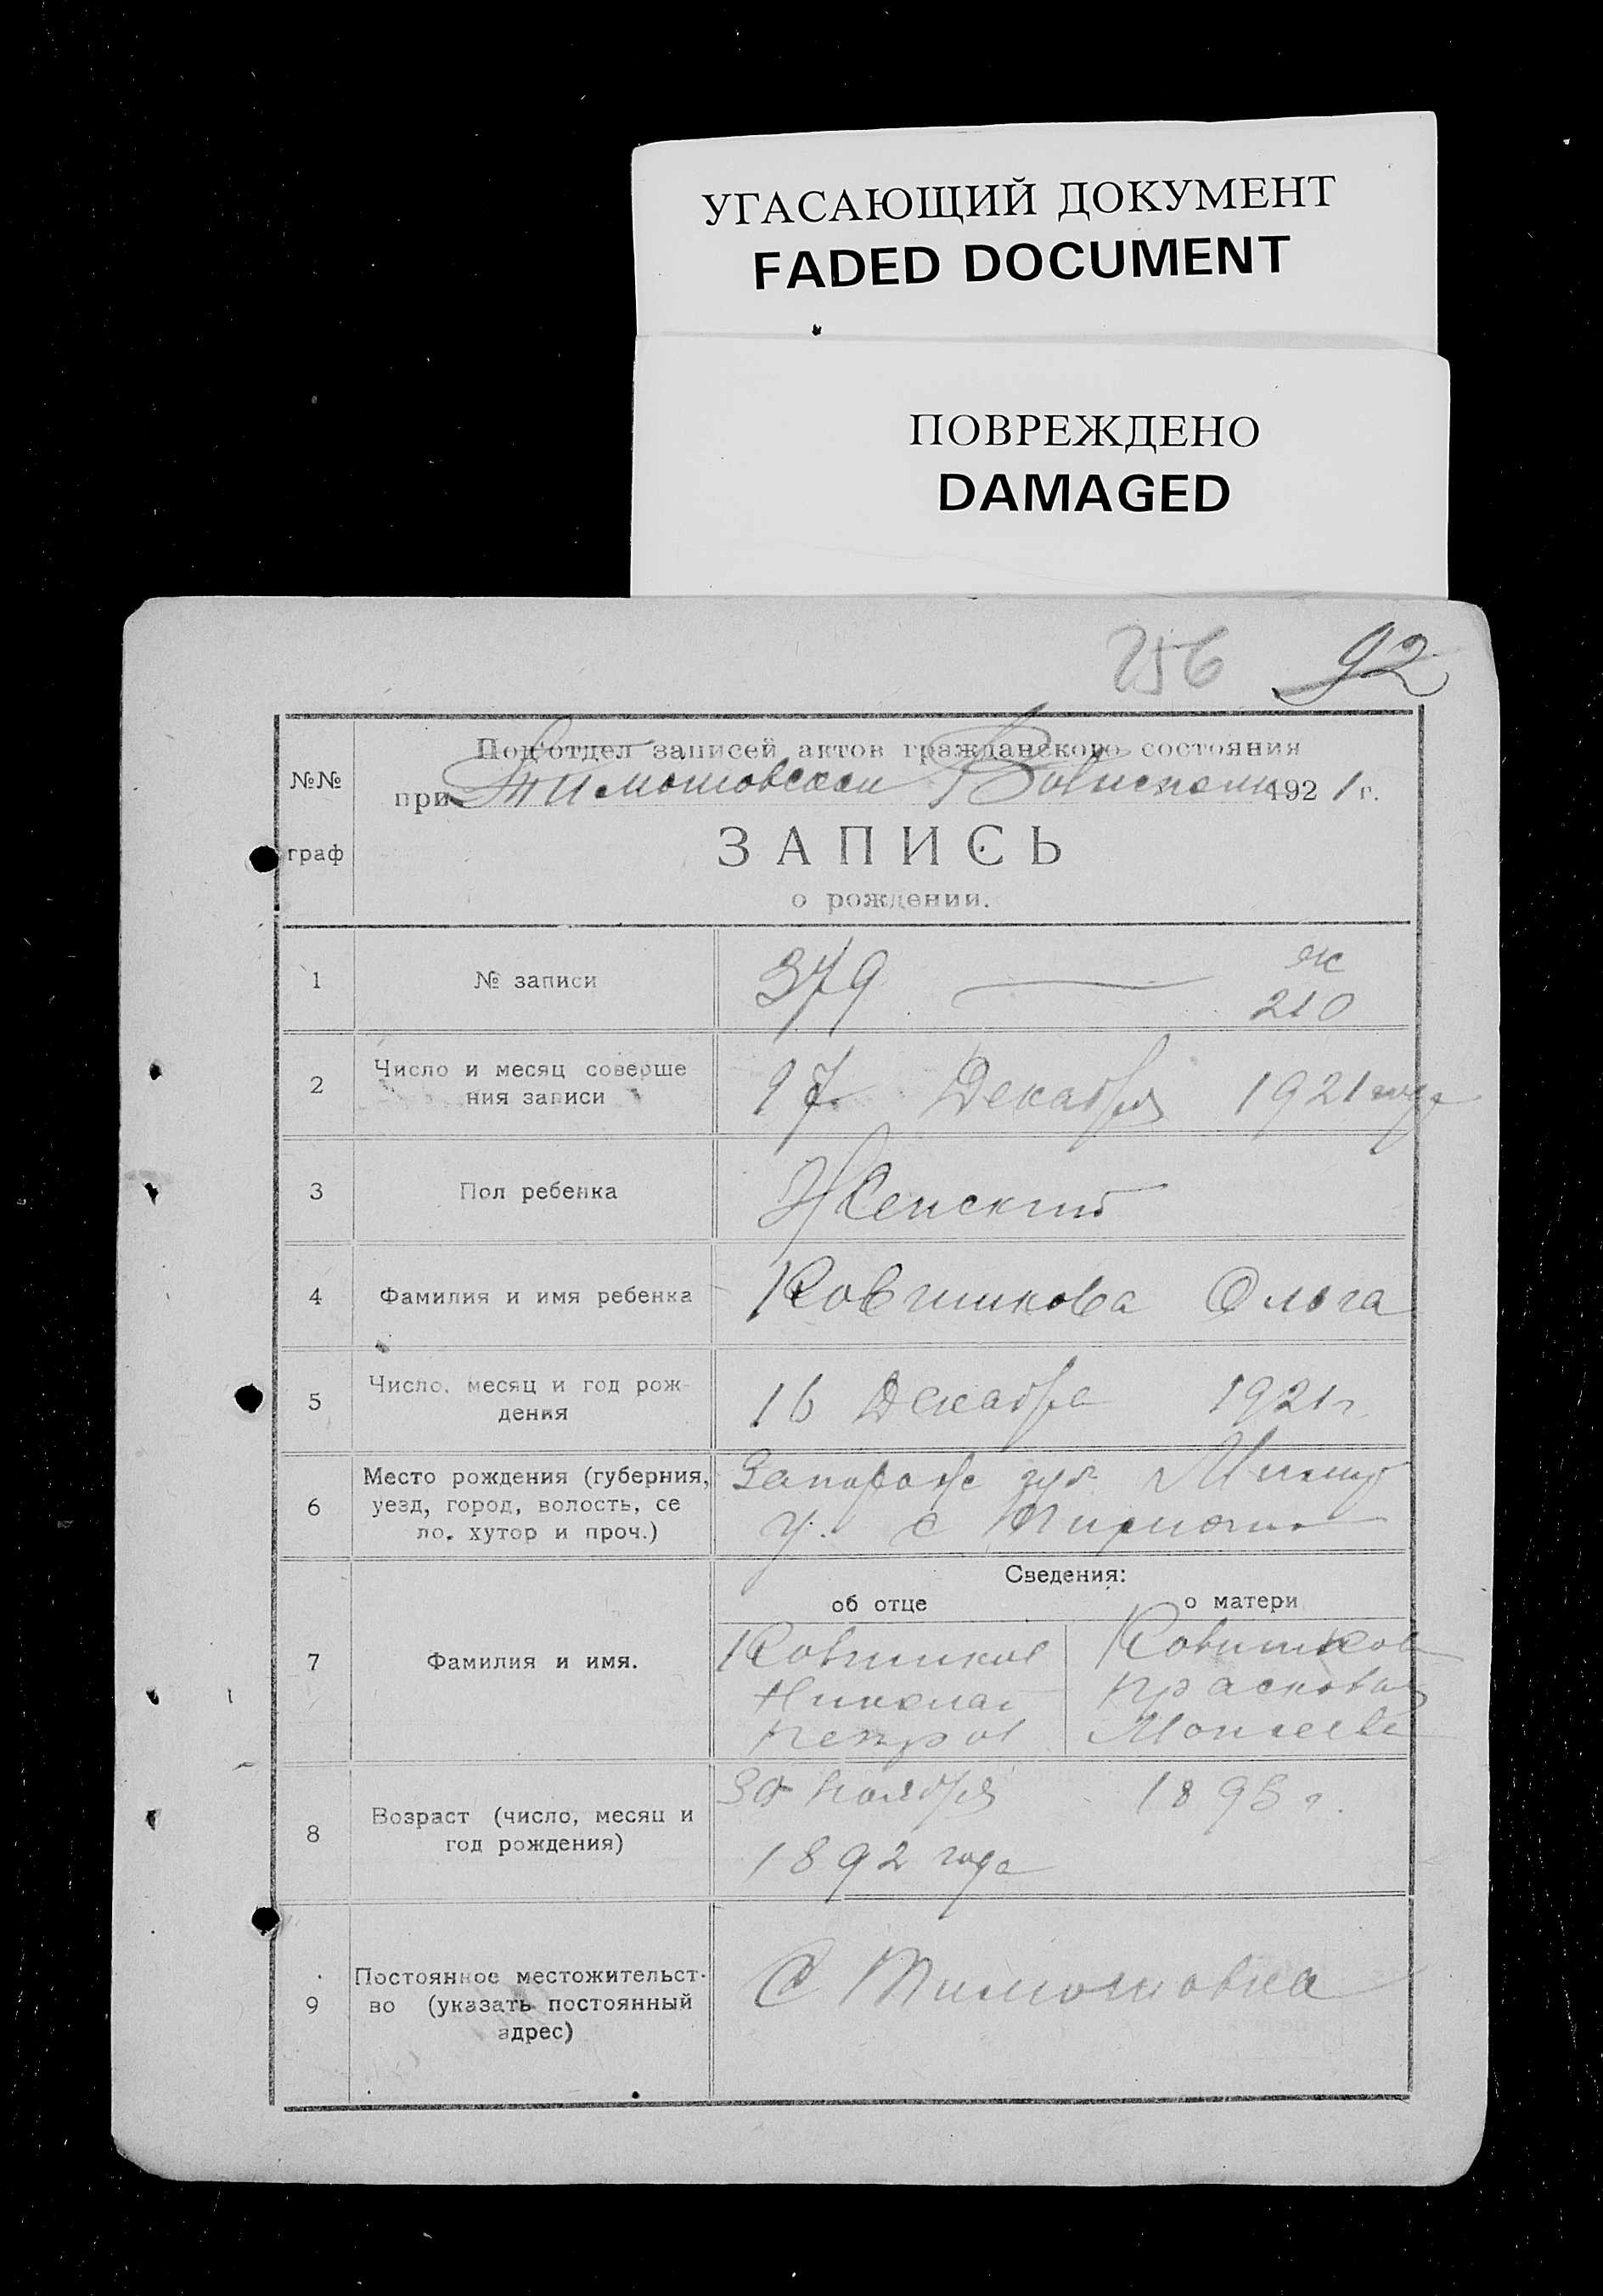 УГАСАЮЩИЙ ДОКУМЕНТ
FADED DOCUMENT
ПОВРЕЖДЕНО
DAMAGED
256 92
Под'отдел записей актов гражданского состояния
при Тимошовском 1921 г.
№№ граф
ЗАПИСЬ
о рождении.
1 № записи 379 ж
210
2 Число и месяц соверше
ния записи
17 Декабря 1921 года
3 Пол ребенка Женский
4 Фамилия и имя ребенка Ковшикова Ольга
5 Число, месяц и год рож-
дения
16 Декабря 1921 г.
6 Место рождения (губерния,
уезд, город, волость, се
ло, хутор и проч.)
Запорож губ
у. с
Сведения:
об отце о матери
7 Фамилия и имя.
Ковшиков Ковшиков
Николай Прасковья
Петров Моисеев
8 Возраст (число, месяц и
год рождения)
30 Ноября 1893 г.
1892 года
9 Постоянное местожительст-
во (указать постоянный
адрес)
С Тимошовка